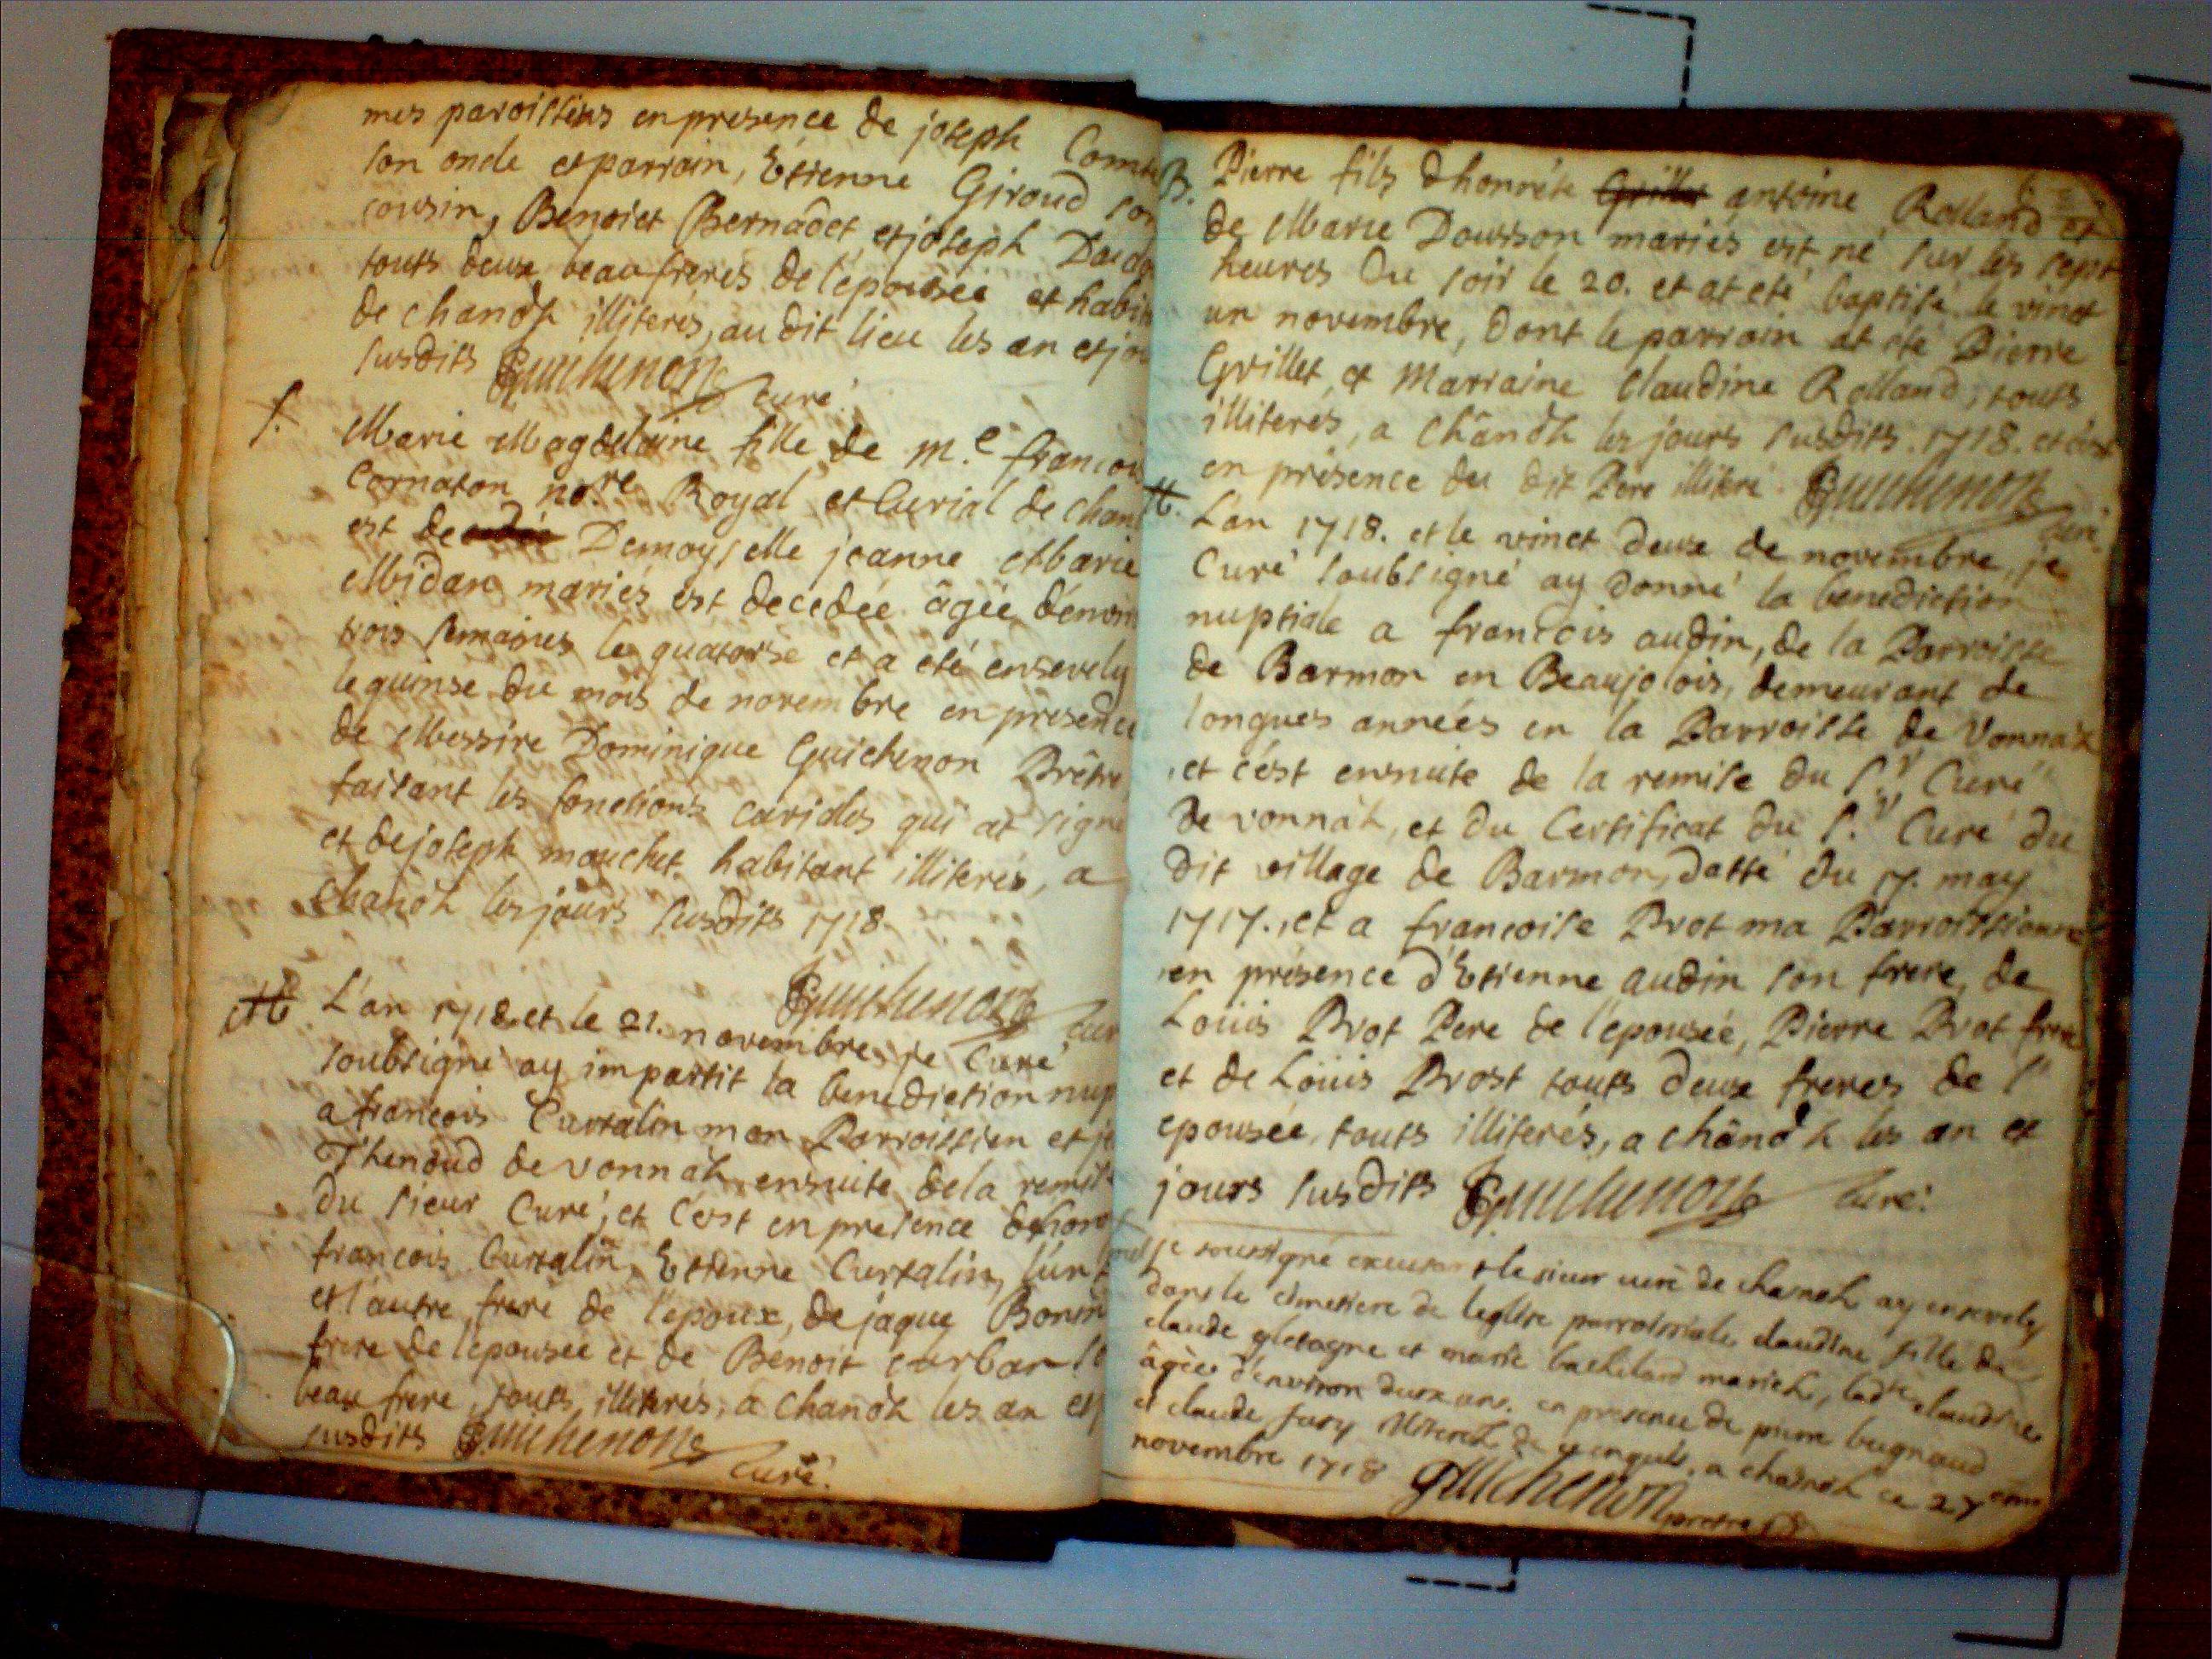 mes paroissiens en presence de joseph Comte
son oncle et parrain, Étienne Giroud son
cousin, Benoict Bernadet et joseph
touts deux beaufreres de l'epousée et habit
de chanoz illiterés, au dit lieu les an et jou
susdits Guichenon curé.
S. Marie Magdelaine fille de m.e francois
Cornaton no.re Royal et Curial de chan
est de Demoyselle jeanne Marie
Midan mariés est decedée âgée d'environ
trois semaines le quatorse et a eté ensevely
le quinse du mois de novembre en presence
de Messire Dominique Guichenon Prêtre
faisant les fonctions curiales qui at signé
et de joseph mouchet habitant illiterés, a
chanoz les jours susdits 1718.
Guichenon Cur
M L'an 1718. et le 21. novembre je Curé
soubsigné ay impartit la benediction nup
a francois Curtalin mon Parroissien et je
Thenoud de vonnaz ensuite de la remise
du sieur Curé, et c'est en presence
francois Curtalin, Estienne Curtalin, l'un
et l'autre frere de l'epoux, de jaque Bonin
frere de l'epousée et de Benoit curban so
beau frere, touts illiterés, a chanoz les an et j
susdits Guichenon Curé.
B. Pierre fils d'honnéte Grillet antoine Rolland et
de Marie Dousson mariés est né sur les sept
heures du soir le 20. et at eté baptisé le vingt
un novembre, dont le parrain at eté Pierre
Grillet, et Marraine Claudine Rolland, touts
illiteres, a chânoz les jours susdits. 1718. et c'est
en présence du dit Pere illiteré. Guichenon Curé.
M. L'an 1718. et le vinct deux de novembre, je
Curé soubsigné ay donné la benediction
nuptiale a francois audin, de la Parroisse
de Barmon en Beaujolois, demeurant de
longues années en la Parroisse de Vonnaz
, et c'est ensuite de la remise du S.r Curé
de vonnaz, et du Certificat du S.r Curé du
dit village de Barmon, datté du 17. may
1717., et a francoise Brot ma Parroissienne
en présence d'Etienne audin son frere, de
Loüis Brot Pere de l'epousée, Pierre Brot frere
et de Loüis Brost touts deux freres de l'
epousée, touts illiterés, a chânoz les an et
jours susdits Guichenon Curé.
je soussigné le sieur curé de chanoz ay ensevely
dans le cimetiere de leglise parroissiale claudine fille de
claude gletagne et marie bachelard mariez, lad.te claudine
âgée d'environ deux ans. en presence de pierre
et claude a chanoz ce 27eme
novembre 1718 guichenon pretre